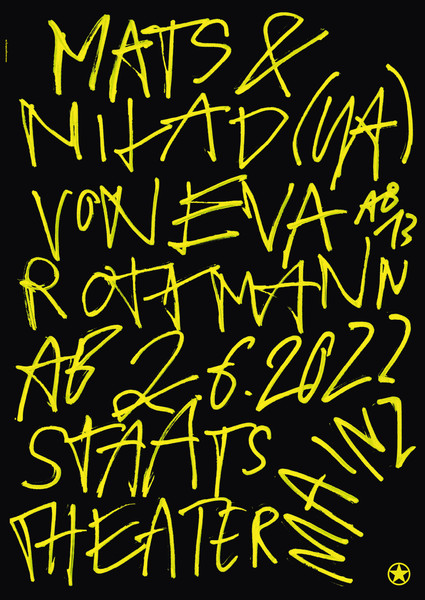 MATS &
MILAD (UA)
VON EVA
AB 13
ROTTMANN
AB 2.6.2022
STAATS
THEATER
MAINZ